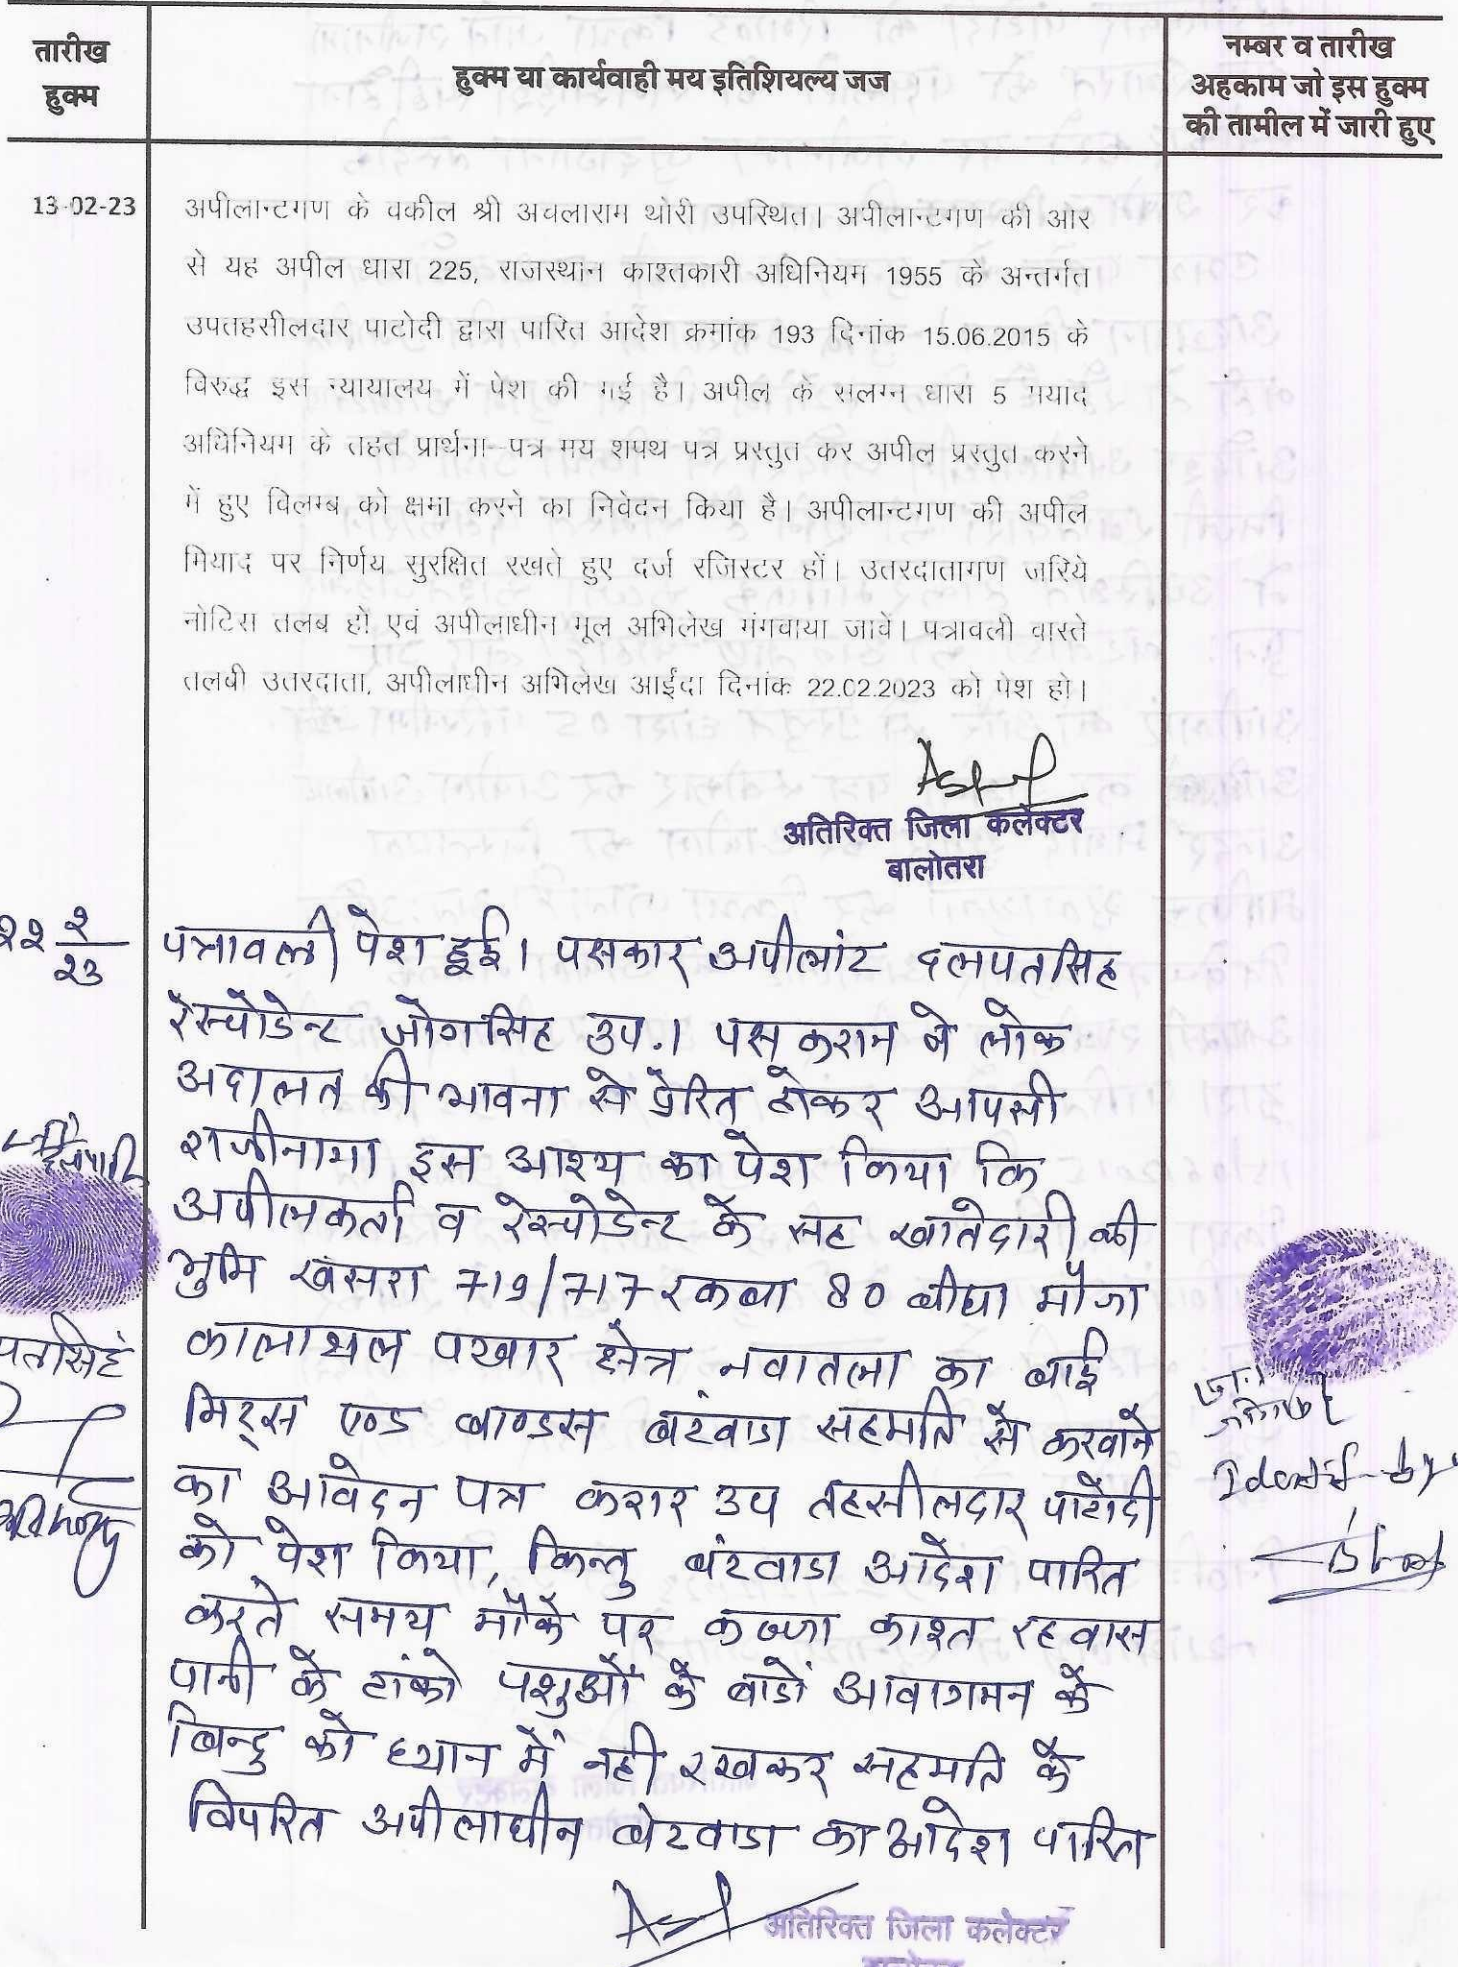 तारीख
हुक्म
हुक्म या कार्यवाही मय इतिशियल्य जज
नम्बर व तारीख
अहकाम जो इस हुक्म
की तामील में जारी हुए
13-02-23
अपीलान्टगण के वकील श्री अचलाराम थोरी उपस्थित। अपीलान्टगण की ओर
से यह अपील धारा 225, राजस्थान काश्तकारी अधिनियम 1955 के अन्तर्गत
उपतहसीलदार पाटोदी द्वारा पारित आदेश क्रमांक 193 दिनांक 15.06.2015 के
विरुद्ध इस न्यायालय में पेश की गई है। अपील के सलग्न धारा 5 मयाद
अधिनियम के तहत प्रार्थना-पत्र मय शपथ पत्र प्रस्तुत कर अपील प्रस्तुत करने
में हुए विलम्ब को क्षमा करने का निवेदन किया है। अपीलान्टगण की अपील
मियाद पर निर्णय सुरक्षित रखते हुए दर्ज रजिस्टर हों। उतरदातागण जरिये
नोटिस तलब हो एवं अपीलाधीन मूल अभिलेख मंगवाया जावें। पत्रावली वास्ते
तलबी उतरदाता, अपीलाधीन अभिलेख आईंदा दिनांक 22.02.2023 को पेश हो।
अतिरिक्त जिला कलेक्टर
बालोतरा
२२ २/२३
पत्रावली पेश हुई। पक्षकार अपीलांट दलपतसिह
रेस्पोडेन्ट जोगसिह उप.। पक्षकारान ने लोक
अदालत की भावना से प्रेरित होकर आपसी
राजीनामा इस आश्य का पेश किया कि
अपीलकर्ता व रेस्पोडेन्ट के सह खातेदारी की
भुमि खसरा 719/717 रकबा 80 बीघा मौजा
कालाथल पटवार क्षेत्र नवातला का बाई
मिट्स एण्ड बाण्डस बंटवाडा सहमति से करवाने
का आवेदन पत्र करार उप तहसीलदार पाटोदी
को पेश किया, किन्तु बंटवाडा आदेश पारित
करते समय मौके पर कब्जा काश्त रहवास
पानी के टांको पशुओं के बाडों आवागमन के
बिन्दु को ध्यान में नही रखकर सहमति के
विपरित अपीलाधीन बंटवाडा का आदेश पारित
पतसिहं
अतिरिक्त जिला कलेक्टर